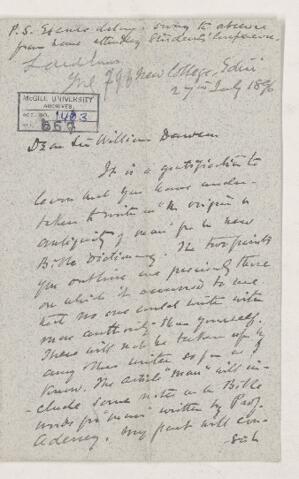 P.S. Excuse delay: owing to absence
from home attending Students' Conference.
New College, Edinr
27th July 1896
McGILL UNIVERSITY
ARCHIVES
ACC. NO. 1463
REF.
Dear Sir William Dawson
It is a gratification to
learn that you have under-
taken to write on "the origin &
antiquity of man" for the new
Bible Dictionary. The two points
you outline are precisely those
on which it occurred to me
that no one could write with
more authority than yourself.
These will not be taken up in
any other written so far as I
know. The article "man" will in-
clude some notes on the Bible
words for "man" written by Prof.
Adeney. My part will con-